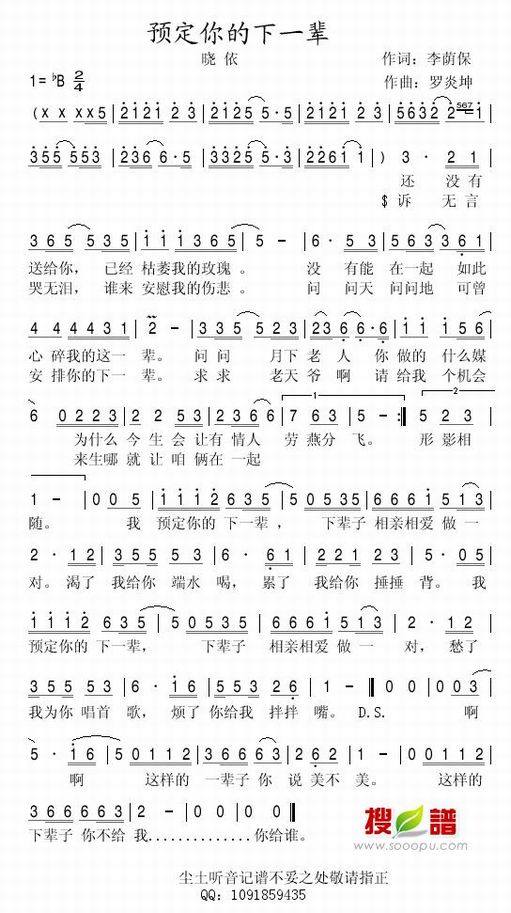 预定你的下一辈
晓依
作词：李荫保
1=♭B 2/4
作曲：罗炎坤
(x x xx5 | 2121 2 3 | 2121 2 3 | 2321 2 3 | 5632 2 567 1 |
355 553 | 236 6·5 | 3325 5·3 | 2261 1 | ) 3· 2 1 |
还 没有
$诉 无言
365 535 | 1 1 1365 | 5 - | 6· 5 3 | 563 361 |
送给你， 已经 枯萎我的玫瑰。 没 有能 在一起 如此
哭无泪， 谁来 安慰我的伤悲。 问 问天 问问地 可曾
4 4 4431 | 2 - | 335 535 | 236 6·6 | 1 1 156 |
心碎我的这一 辈。 问问 月下老人 你做的 什么媒
安排你的下一 辈。 求求 老天爷啊 请给我 个机会
6 0223 | 2 2 53 | 2 236 | 7 63 | 5 - :| 5 2 3 |
为什么 今生 会让有情人 劳燕分 飞。 形影相
来生哪 就让 咱俩在一起
1 - | 0 0 5 | 1 1 1 2 635 | 50535 | 6661 513 |
随。 我 预定你的 下一辈， 下辈子 相亲相爱 做一
2· 12 | 355 553 | 6· 61 | 555 353 | 2· 05 |
对。 渴了 我给你 端水 喝， 累了 我给你 捶捶 背。 我
1112 635 | 50535 | 6661 513 | 2· 12 |
预定你的 下一辈， 下辈子 相亲相爱 做一 对， 愁了
355 553 | 6· 16 | 553 26 | 1 - ‖ 0 0 | 0 03 |
我为你 唱首 歌， 烦了 你给我 拌拌 嘴。 D.S. 啊
5· 16 | 50112 | 3666 335 | 2 1 | 50112 |
啊 这样的 一辈子 你 说 美不 美。 这样的
366 663 | 2 - | 1 - | 0 0 | 0 0 ‖
下辈子 你不给 我............你给谁。
搜谱
www.sooopu.com
尘土听音记谱不妥之处敬请指正
QQ：1091859435